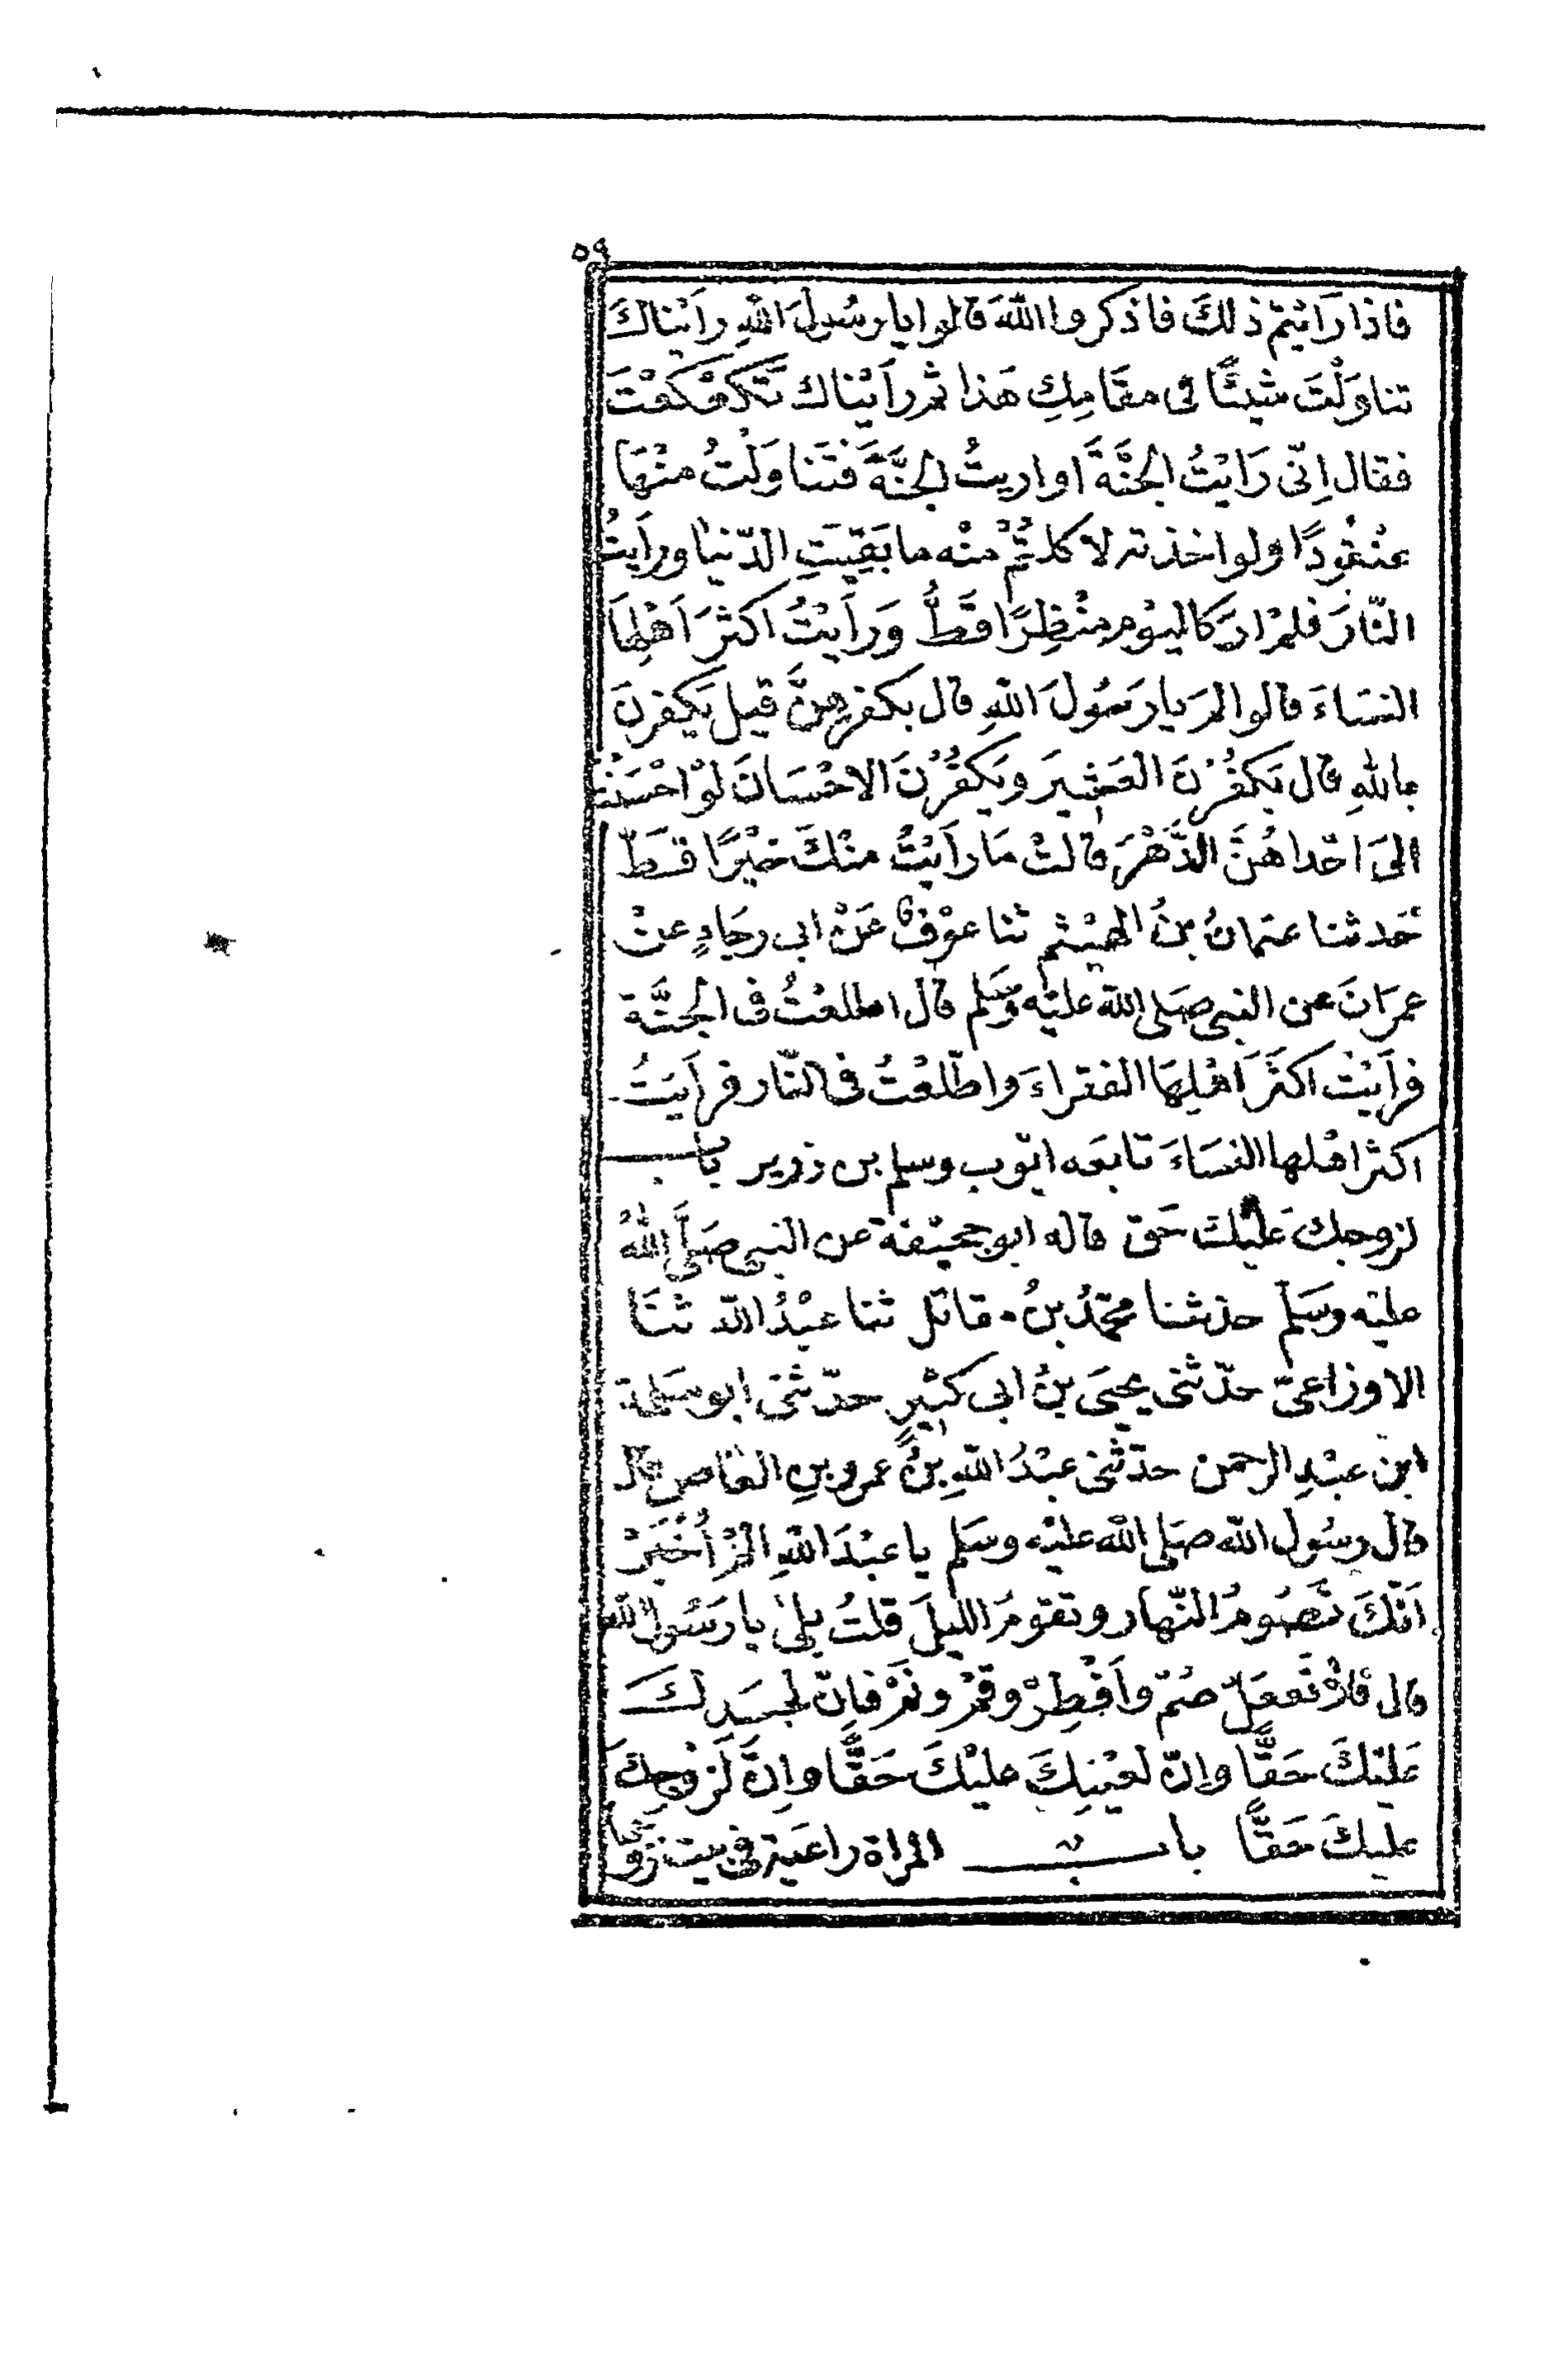 ٥٩
فاذا رَأيْتم ذلكَ فاذكروا اللهَ قالوا يا رسُولَ اللهِ رأيْناكَ
تناوَلْتَ شيئًا فى مقَامِكِ هَذا ثم رأيْناك تَكَعْكَعْتَ
فقال اِنّى رَايْتُ الجنَّةَ او اريتُ الجنَّةَ فتَنَاوَلْتُ منْهَا
عنْقُودًا ولو اخذته لاكلتُمْ منْه ما بَقِيَتِ الدّنيا ورأيتُ
النّارَ فلمْ ارَ كاليَوْم منْظِرًا قَطُّ وَرأيْتُ اكثرَ اَهْلِهَا
النسَاءَ قالوا لمَ يا رَسُولَ اللهِ قال بكفرهنَّ قيل يَكفرنَ
بالله قال يَكفُرْنَ العَشِيرَ ويَكفُرْنَ الاحْسَانَ لوْ احْسَنْتَ
الىَ احْداهُنَّ الدَّهْرَ قالتْ مَا رَأيْتُ منْكَ خيْرًا قَطّ
حَدثنا عثمانُ بنُ الهيْثم ثنا عوْفٌ عَنْ ابى رجَاءٍ عنْ
عمرَانَ عن النبى صَلى الله عليْه وسَلم قال اطلعْتُ فى الجنَّة
فرأيْتُ اكثَرَ اَهْلِهَا الفقراءَ واطّلعْتُ فى النّار فرأيْتُ
اكثر اهْلها النسَاءَ تابعَه ايّوب وسلم بن زرير باب
لزوجك عَليْكَ حَق قاله ابو جحيْفة عن النبى صَلَّى اللهُ
عليْه وسَلم حدثنا محمّدُ بنُ مقاتل ثنا عبْدُ اللّه ثنَا
الاوزاعىّ حدّثنى يحيَى بنُ ابى كثيْرٍ حدّثنى ابو سَلمة
ابن عبْدِ الرحمن حدّثنى عبْدُ اللّهِ بنُ عمرو بنِ العَاص قال
قال رسُول الله صَلى الله عليْه وسَلم يا عبْدَ اللّهِ المْ أُخْبَرْ
اَنّكَ تَصُومُ النّهار وتقومُ الليلَ قلتُ بلىٰ يا رَسُول الله
قال فلا تَفعَلْ صُمْ وأفْطِرْ وقمْ ونَمْ فاِنّ لجسَدِكَ
عَليْكَ حَقًّا واِنّ لعيْنِكَ عليْكَ حَقًّا واِنَّ لزوْجِكَ
عليكَ حَقًّا باب المراة راعيَة فى بيت زَوْجِهَا